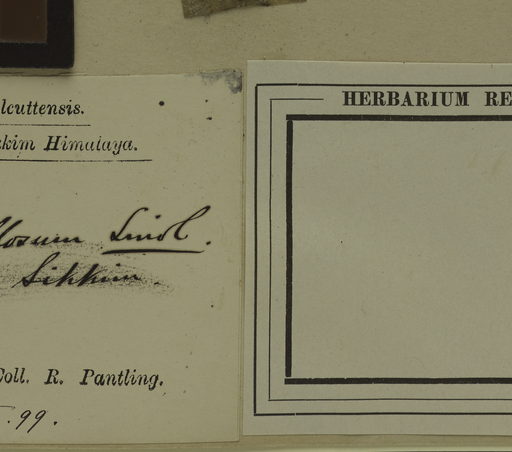 lcuttensis.
kkim Himalaya.
losum Lindl.
Sikkim.
Coll. R. Pantling.
.99.
HERBARIUM RE